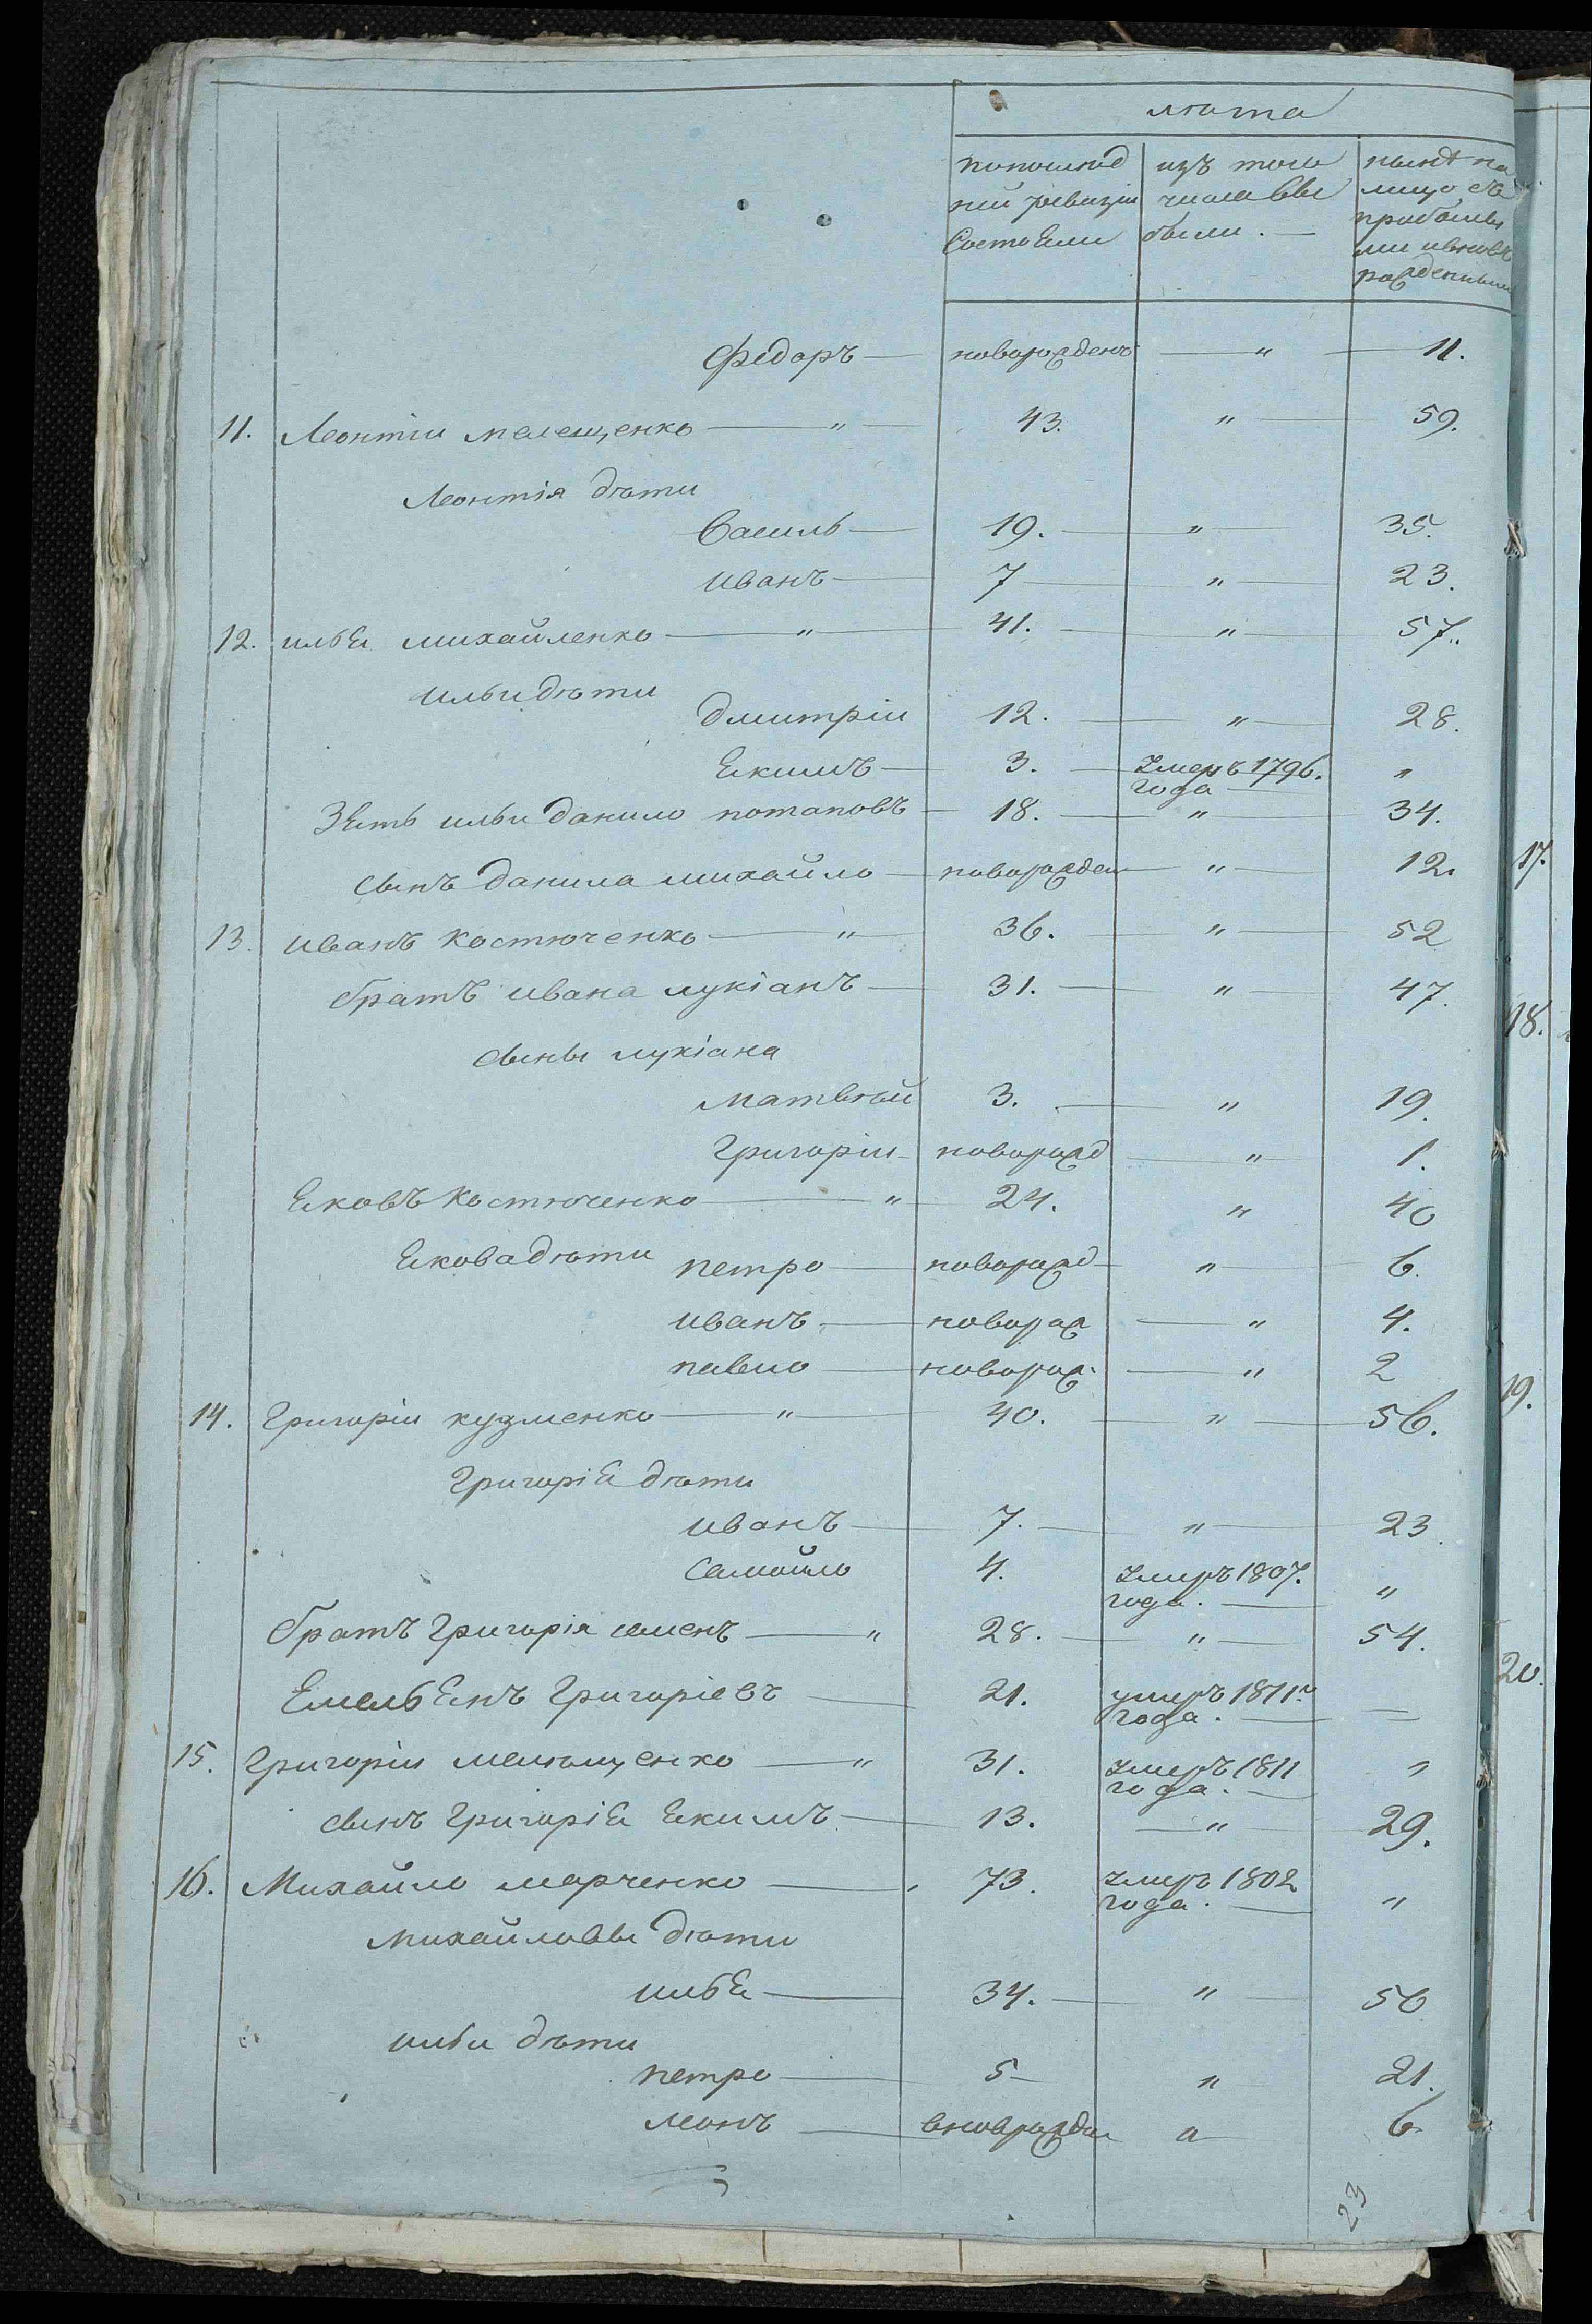 лѣта
попослѣд
изъ того
нынѣ на
ней ревизіи
числа вы
лицо съ
Состояли
были. —
прибылы
ми ивновь
рожденными
Федоръ — новорожденъ — " — 11.
11. Леонтіи мелещенко — " — 43. " — 59.
Леонтія дѣти
Василь — 19. — " — 35.
иванъ — 7 — " — 23.
12. илья михайленко — " — 41. — " — 57.
ильи дѣти
дмитріи 12. — " — 28.
якимъ — 3. — Умеръ 1796. "
года —
Зять ильи данило потаповъ — 18. — " — 34.
сынъ данила михайло — новорожден — " — 12.
13. иванъ костюченко — " — 36. — " — 52
братъ ивана лукіанъ — 31. — " — 47.
сыны лукіана
матвѣй 3. — " 19.
григоріи — новорожд — " 1.
яковъ костюченко — " 24. " 40
якова дѣти петро — новорожд — " 6.
иванъ — новорож — " 4.
павло — новорож. — " 2
14. григоріи кузменко — " — 40. — " — 56.
григорія дѣти
иванъ — 7. — " — 23.
Самойло 4. Умеръ 1807. "
года. —
братъ григорія семенъ — " 28. — " — 54.
Емельянъ григоріевъ — 21. умеръ 1811го —
года. —
15. григоріи мелющенко — " 31. Умеръ 1811 "
года. —
сынъ григорія якимъ — 13. — " — 29.
16. Михайло марченко — " 73. Умеръ 1802 "
года. —
михайловы дѣти
илья — 34. — " — 50
ильи дѣти
петро — 5 — " 21.
леонъ — вноврожден " — 6.
23
17.
18.
19.
20.